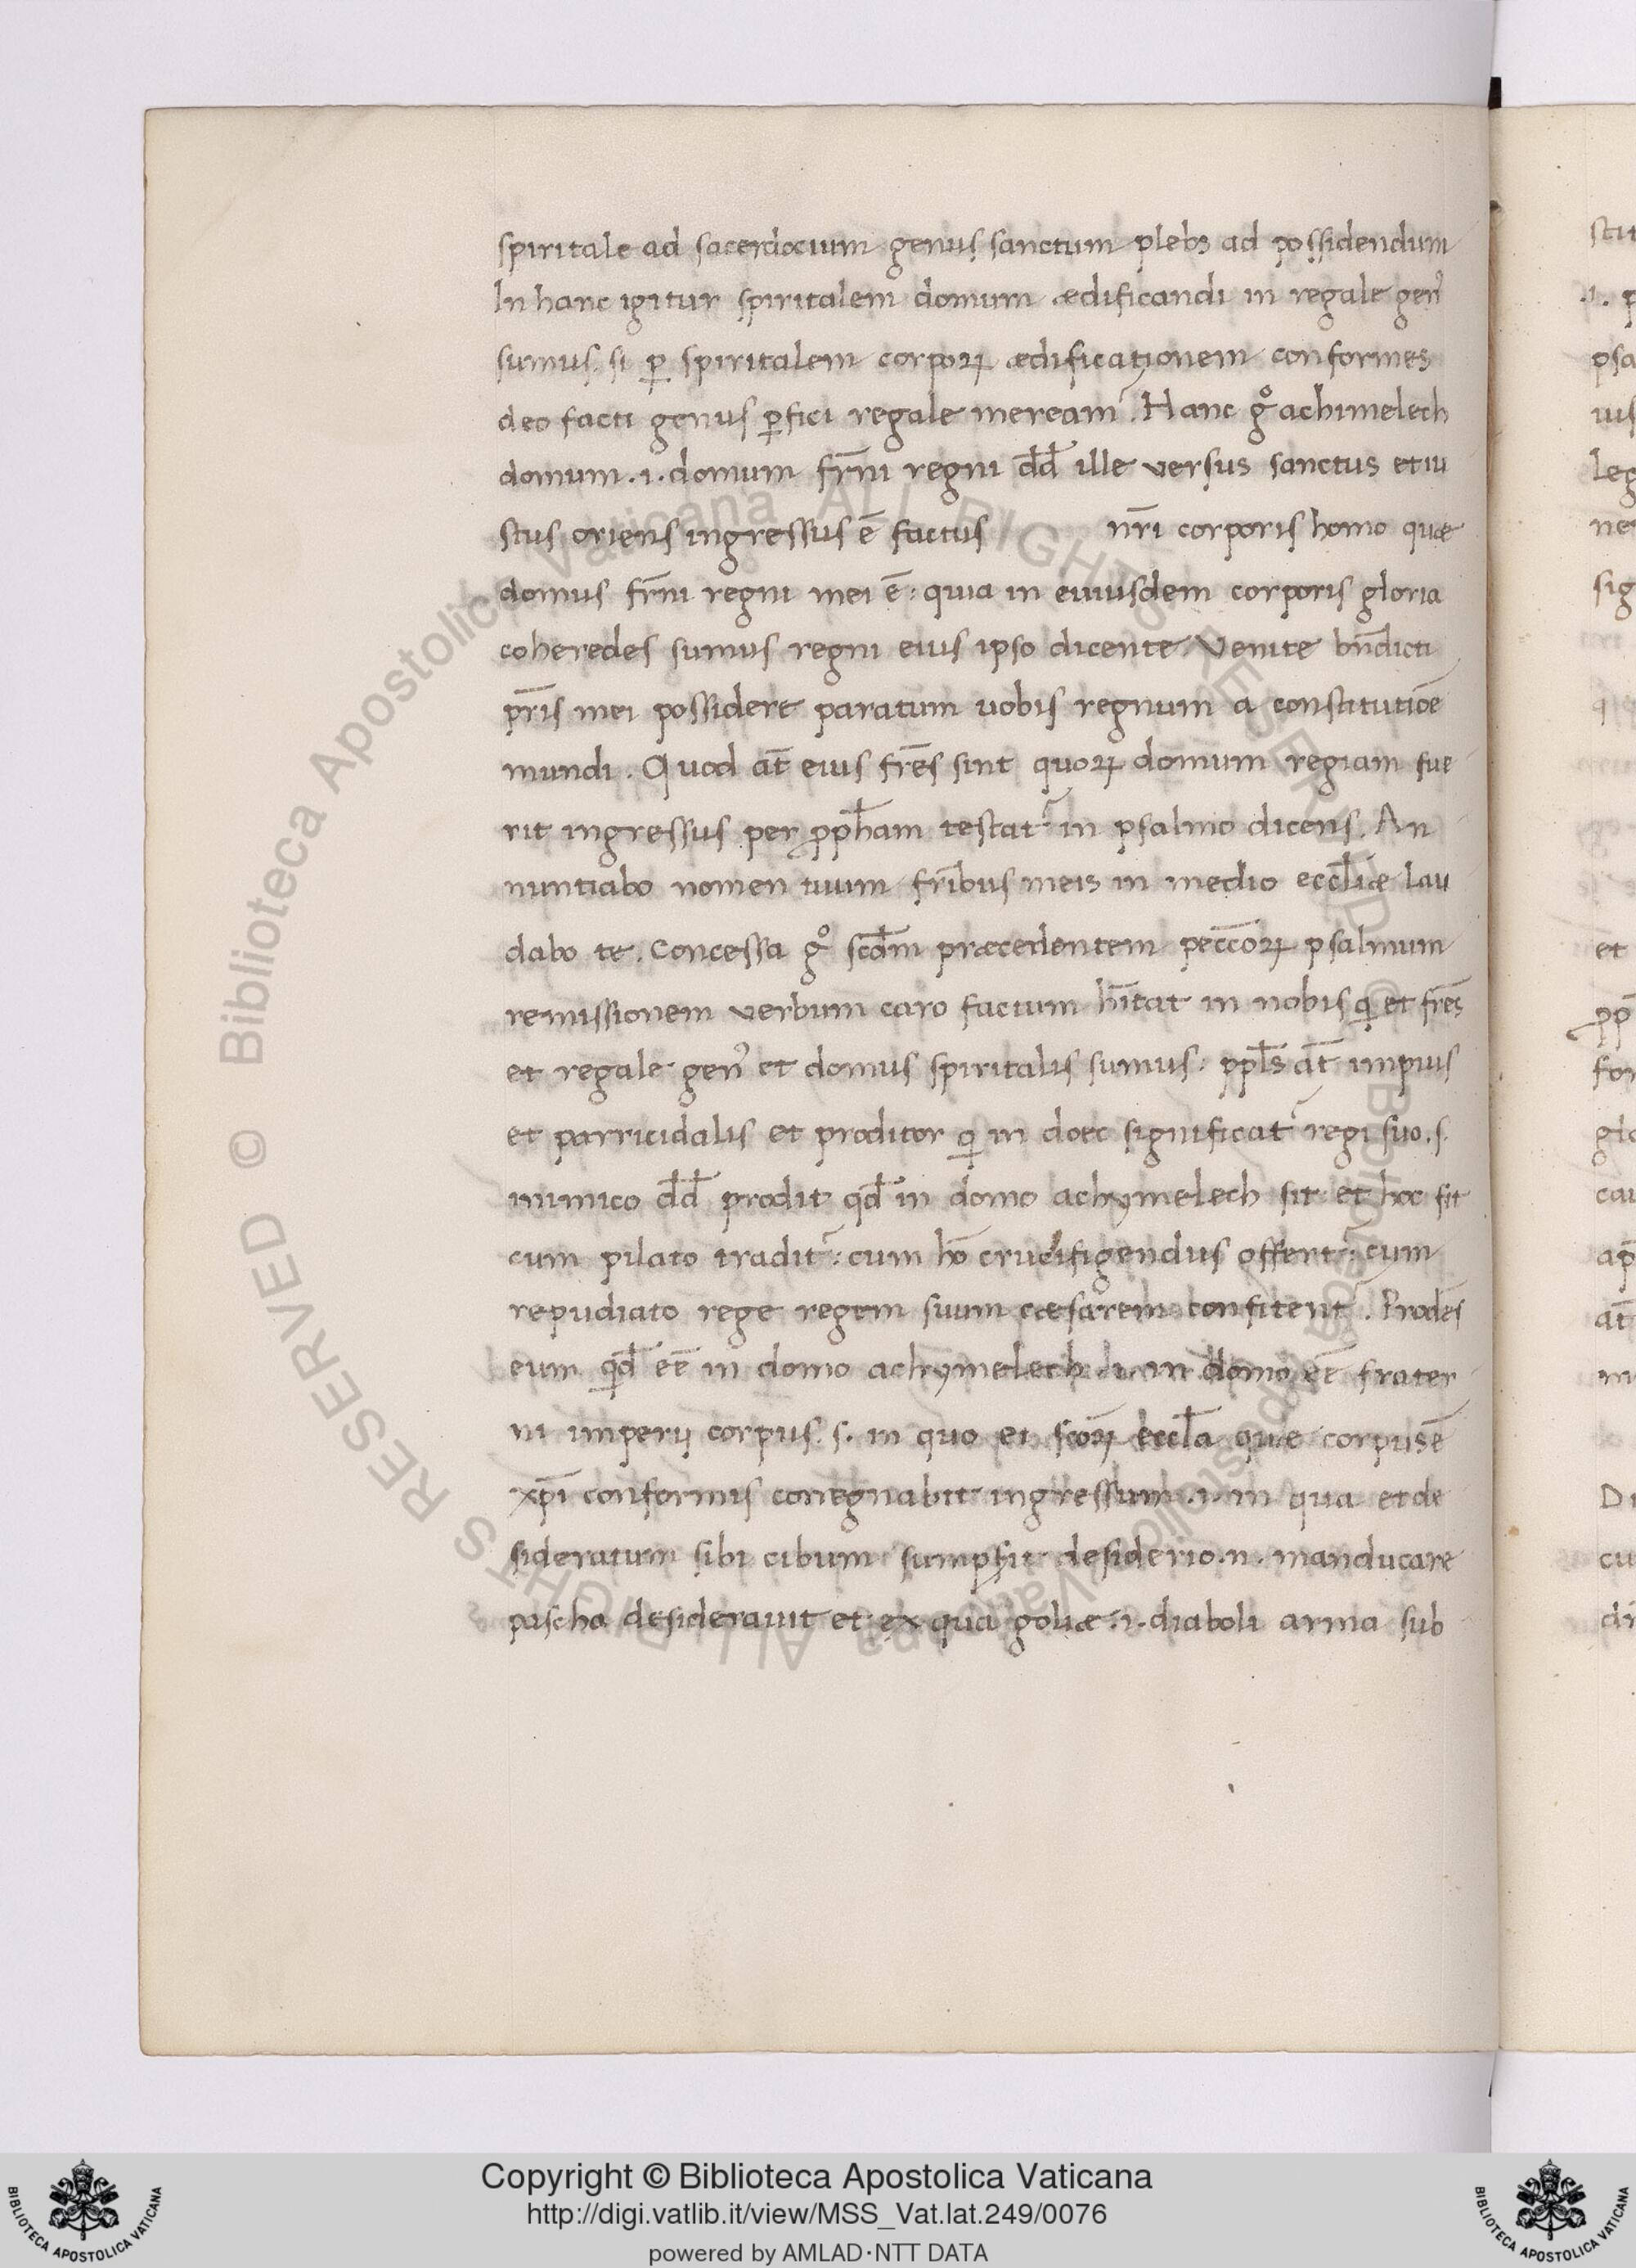 spiritale ad sacerdocium genus sanctum plebs ad possidendum
In hanc igitur spiritalem domum ædificandi in regale gen᾽
sumus. si ꝑ spiritalem corpoꝝ ædificationem conformes
deo facti genus ꝑfici regale meream᾽. Hanc gͦ achimelech
domum .i. domum fr̄ni regni dd̄ ille versus sanctus et iu
stus oriens ingressus ē factus nr̄i corporis homo quæ
domus fr̄ni regni mei ē: quia in eiuiusdem corporis gloria
coheredes sumus regni eius ipso dicente. Venite bn̄dicti
pr̄is mei possidere paratum uobis regnum a constitutiōe
mundi. Quod at̄ eius fr̄es sint quoꝝ domum regiam fue
rit ingressus per ꝓpħam testat᾽ in psalmo dicens. An
nuntiabo nomen tuum fr̄ibus meis in medio eccl̄iæ lau
dabo te. Concessa gͦ scd̄m præcedentem pecc̄oꝝ psalmum
remissionem verbum caro factum hītat in nobis q̣ et fr̄es
et regale gen᾽ et domus spiritalis sumus: ppl̄s at̄ impius
et parricidalis et proditor q̣ in doec significat᾽ regi suo .s.
inimico dd̄ prodit qd̄ in domo achymelech sit et hoc fit
cum pilato tradit᾽: cum hō crucifigendus offert᾽: cum
repudiato rege regem suum cæsarem confitent᾽. Prodēs
eum qd̄ eē in domo achymelech .i. in domo eē frater
ni imperij corpus .s. in quo et sc̄oꝝ eccl̄a quæ corpus ē
xp̄i conformis conregnabit ingressum .i. in qua et de
sideratum sibi cibum sumpsit desiderio .n. manducare
pascha desiderauit et ex qua goliæ .i. diaboli arma sub
Copyright © Biblioteca Apostolica Vaticana
http://digi.vatlib.it/view/MSS_Vat.lat.249/0076
powered by AMLAD·NTT DATA